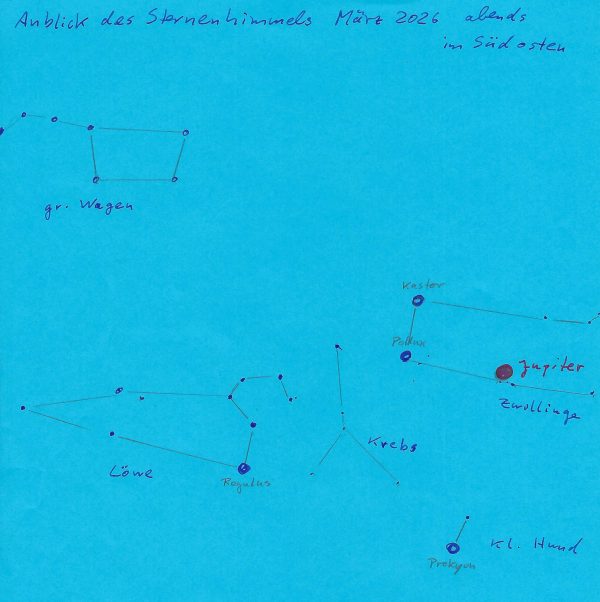 Anblick des Sternenhimmels März 2026 abends
im Südosten
gr. Wagen
Kastor
Pollux
Jupiter
Zwillinge
Krebs
Löwe
Regulus
Kl. Hund
Prokyon